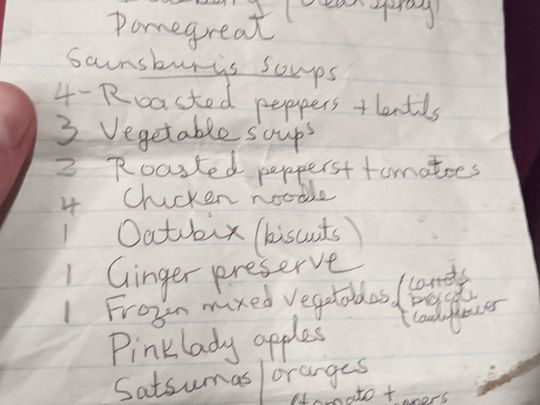 Pomegreat
Sainsburys soups
4 - Roasted peppers + lentils
3 Vegetable soups
Roasted peppers + tomatoes
4 Chicken noodle
1 Oatibix (biscuits)
1 Ginger preserve
1 Frozen mixed vegetables (carrots
broccoli
cauliflower
Pinklady apples
Satsumas / oranges
(tomato +